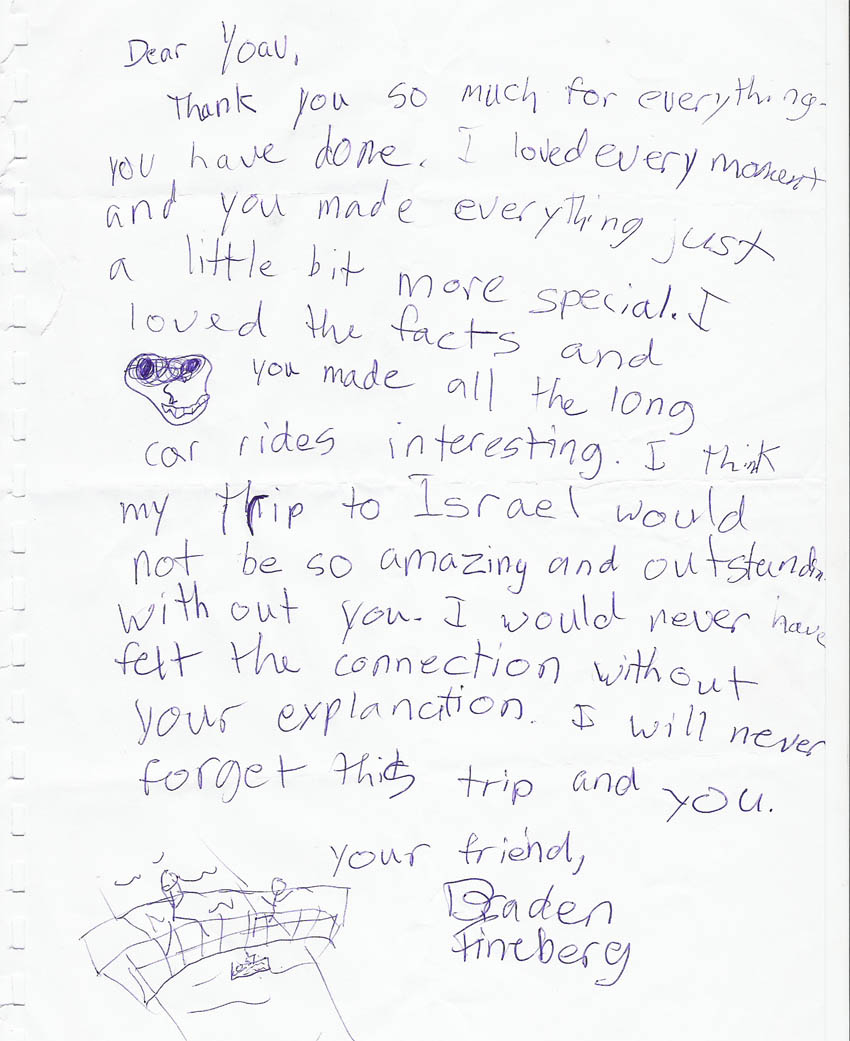 Dear Yoav,
Thank you so much for everything
you have done. I loved every moment
and you made everything just
a little bit more special. I
loved the facts and
you made all the long
car rides interesting. I think
my trip to Israel would
not be so amazing and outstandin
with out you. I would never have
felt the connection without
your explanation. I will never
forget this trip and you.
your friend,
Braden
Fineberg